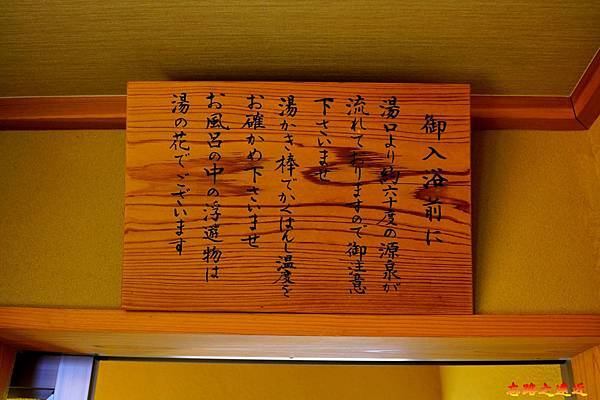 御入浴前に
湯口より約六十度の源泉が
流れておりますので御注意
下さいませ
湯かき棒でかくはんし温度を
お確かめ下さいませ
お風呂の中の浮遊物は
湯の花でございます
志路之遙近